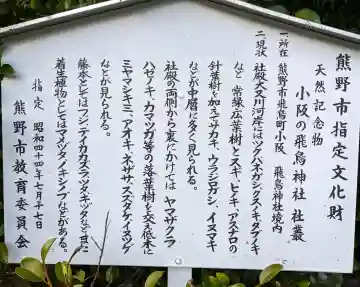 熊野市指定文化財
天然記念物
小阪の飛鳥神社社叢
一所在 熊野市飛鳥町小阪 飛鳥神社境内
二現状
社殿大又川河岸にはツクバネガシ、クスノキ、タブノキ
など 常緑広葉樹とスギ、ヒノキ、アスナロの
針葉樹を加えてサカキ、ウラジロガシ、イヌマキ
などが中層に多く見られる。
社殿の両側から東にかけては ヤマザクラ
ハゼノキ、カマツガ等の落葉樹を交え低木に
ミヤマシキミ、アオキ、ネザサ、スズタケ、イヌツゲ
などが見られる。
藤本としてはフジ、テイカカズラ、ツタ、キヅタなどまた
着生植物としてはマメヅタ、ノキシノブなどがある。
指定 昭和四十四年七月十七日
熊野市教育委員会